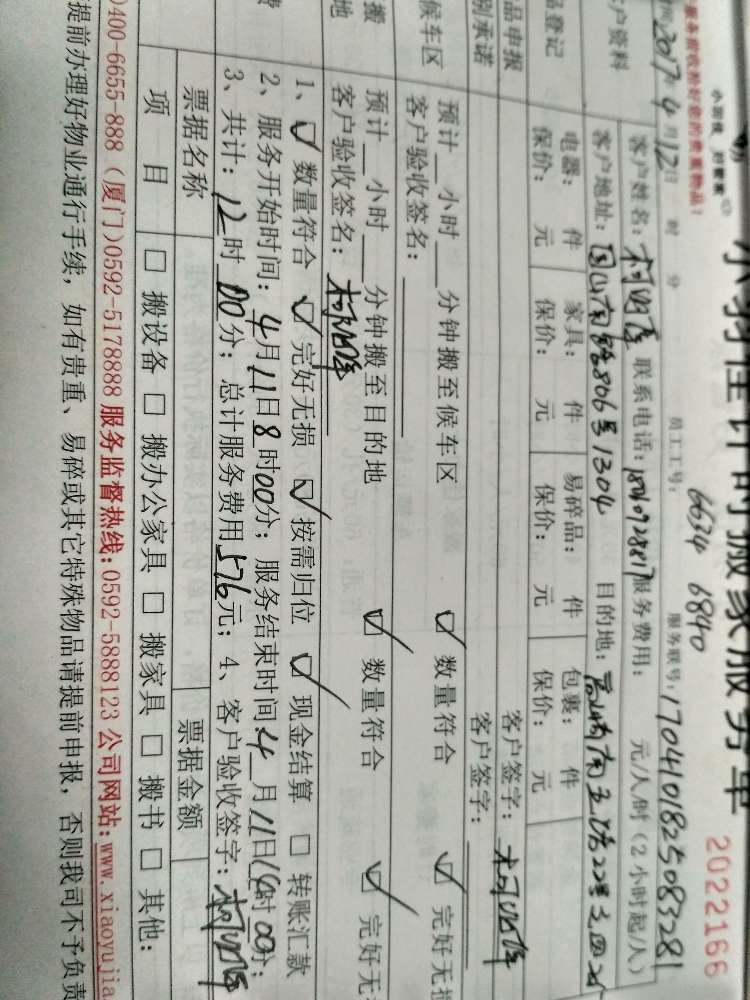 小羽佳计时搬家服务单
2022166
服务验收检好您的贵重物品！
员工工号：6634 6840
服务联号：1704101825083281
2017年4月12日 时 分
客户资料
客户姓名： 联系电话： 服务费用： 元/人/时（2小时起/人）
客户地址： 806号1304 目的地：
品登记
电器： 件 家具： 件 易碎品： 件 包裹： 件
保价： 元 保价： 元 保价： 元 保价： 元
品申报 客户签字：
别承诺 客户签字：
候车区
预计 小时 分钟搬至候车区 ☑ 数量符合 ☑ 完好无损
客户验收签名：
搬
地
预计 小时 分钟搬至目的地 ☑ 数量符合 ☑ 完好无
客户验收签名：
费
1、☑ 数量符合 ☑ 完好无损 ☑ 按需归位 ☑ 现金结算 □ 转账汇款
2、服务开始时间：4月11日8时00分；服务结束时间4月11日 时00分；
3、共计：12时00分；总计服务费用576元；4、客户验收签字：
票据名称 票据金额
项 目 □ 搬设备 □ 搬办公家具 □ 搬家具 □ 搬书 □ 其他：
)400-6655-888（厦门)0592-5178888 服务监督热线:0592-5888123 公司网站:www.xiaoyujia.
提前办理好物业通行手续，如有贵重、易碎或其它特殊物品请提前申报，否则我司不予负责